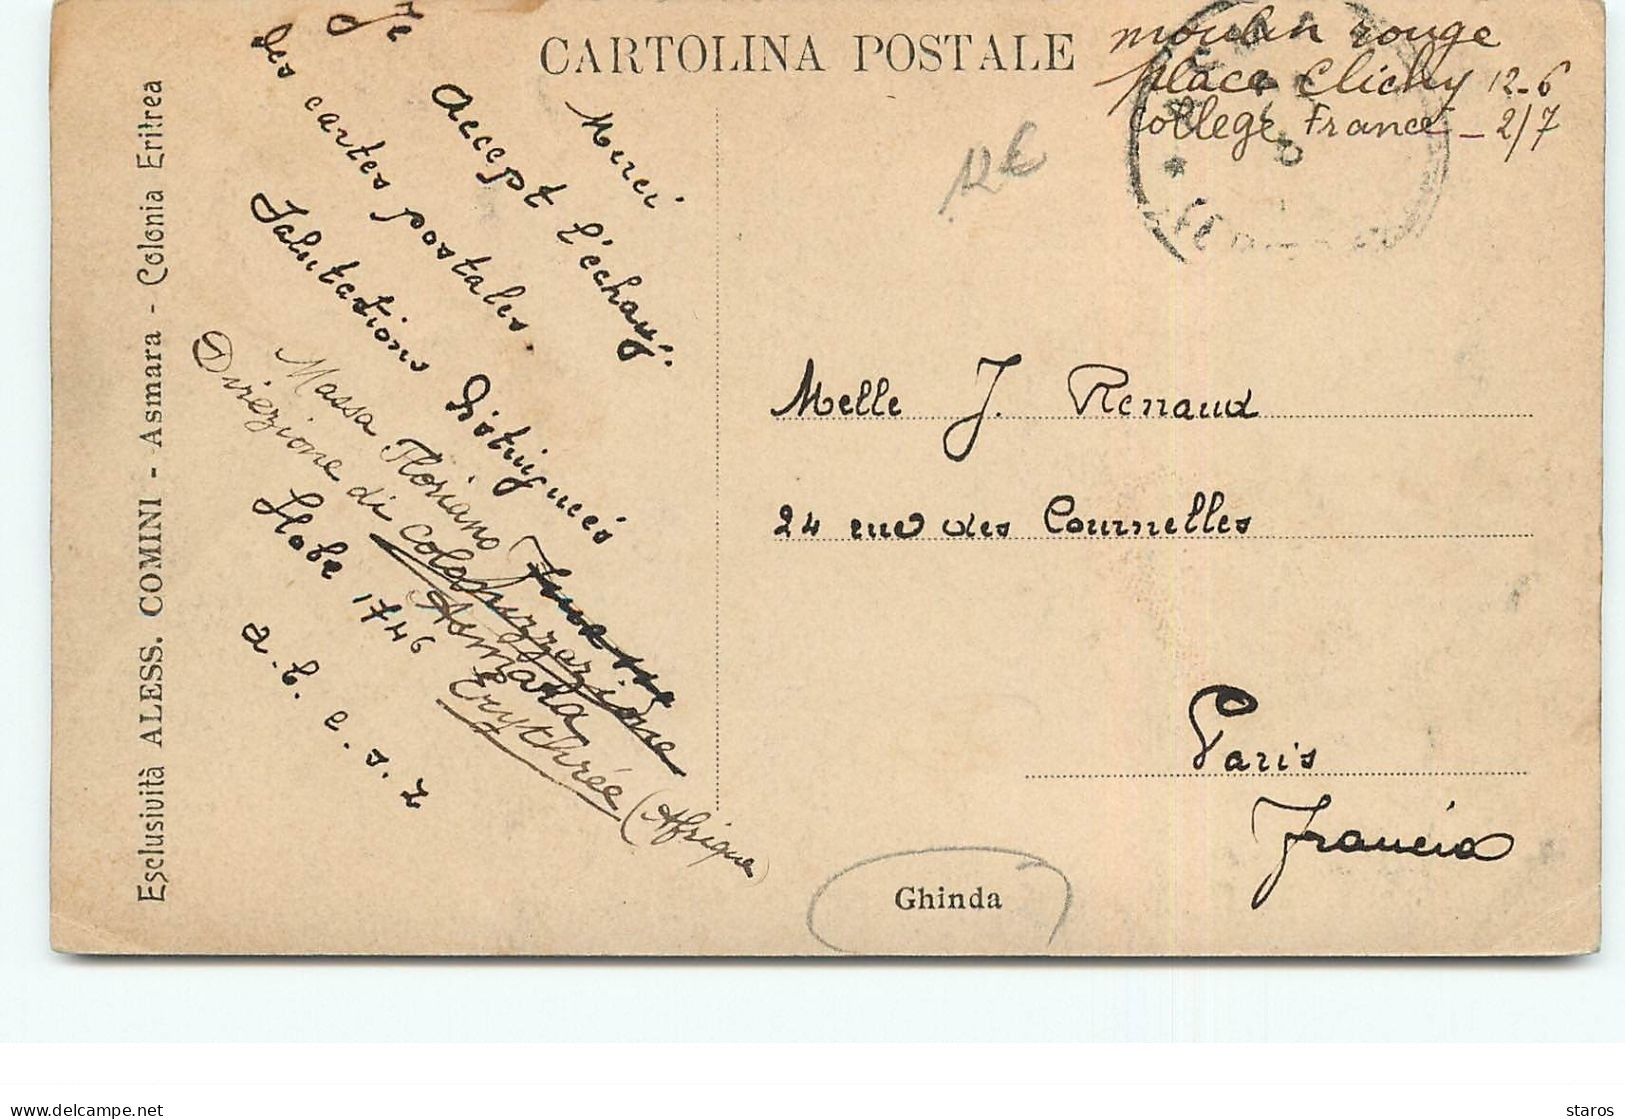 CARTOLINA POSTALE
moulin rouge
place Clichy 12-6
College France - 2/7
12€
Merci
Je accept l'échang.
des cartes postales.
Salutations distinguées
Massa Floriano
Direzione di Colonizzazione
Asmara
Erythrée (Afrique)
Globe 1746
a. b. c. s. z
Melle J. Renaud
24 rue des Cournelles
Paris
Francia
Ghinda
Esclusività ALESS. COMINI - Asmara - Colonia Eritrea
delcampe.net
staros